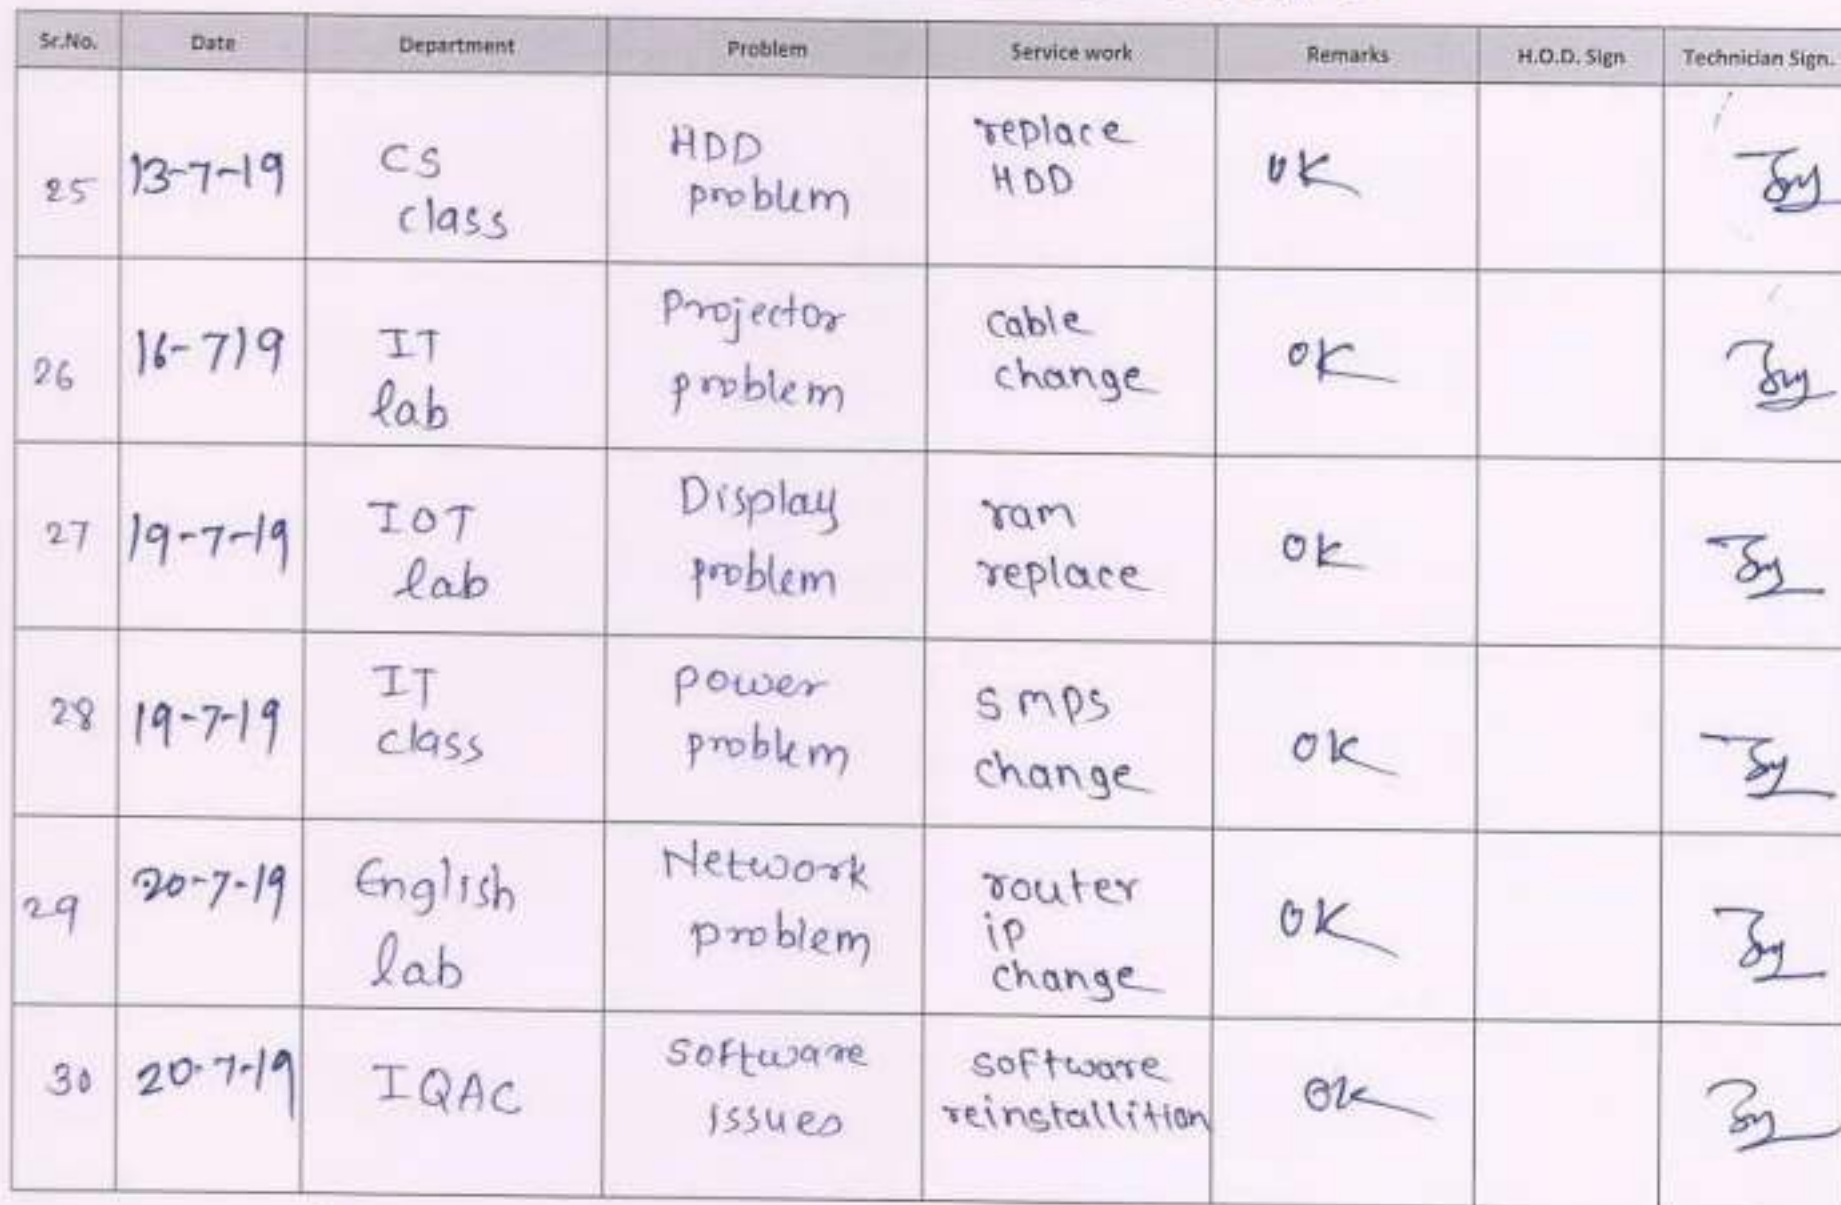 Sr.No. Date Department Problem Service work Remarks H.O.D. Sign Technician Sign.
25 13-7-19 CS class HDD problem replace HDD OK
26 16-719 IT lab Projector problem cable change OK
27 19-7-19 IOT lab Display problem ram replace OK
28 19-7-19 IT class power problem smps change OK
29 20-7-19 English lab Network problem router ip change OK
30 20-7-19 IQAC software issues software reinstallition OK